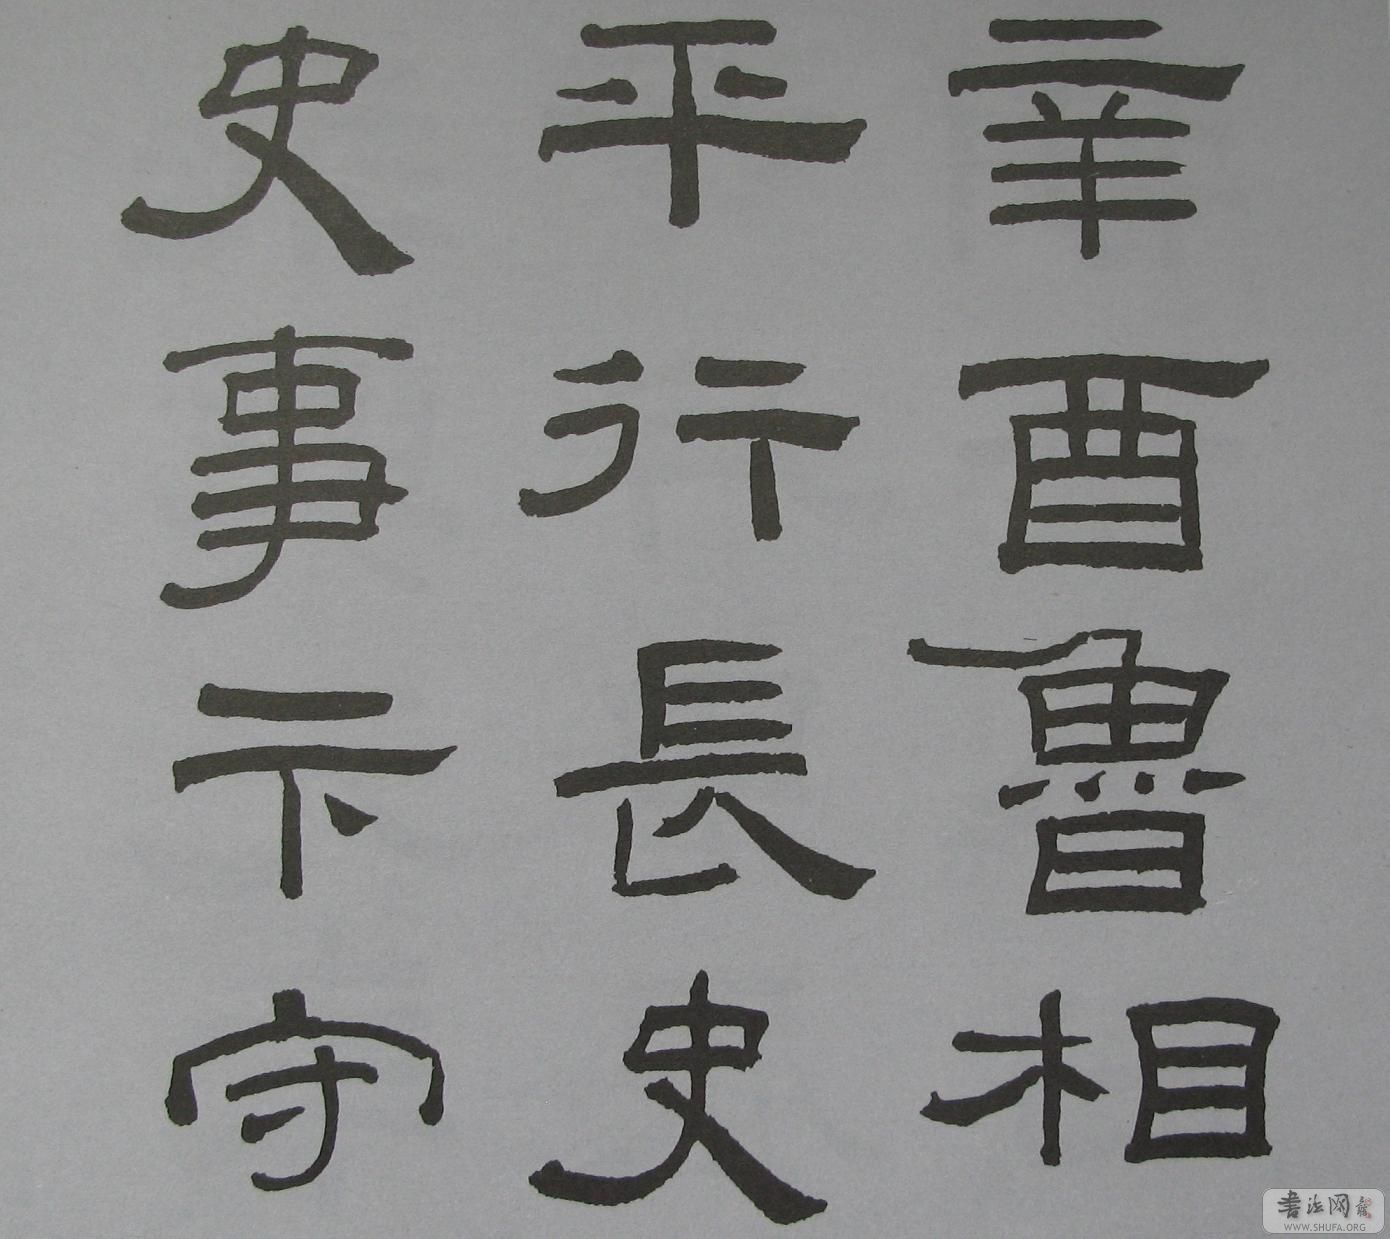 辛酉魯相
平行長史
史事卞守
書法网
WWW.SHUFA.ORG